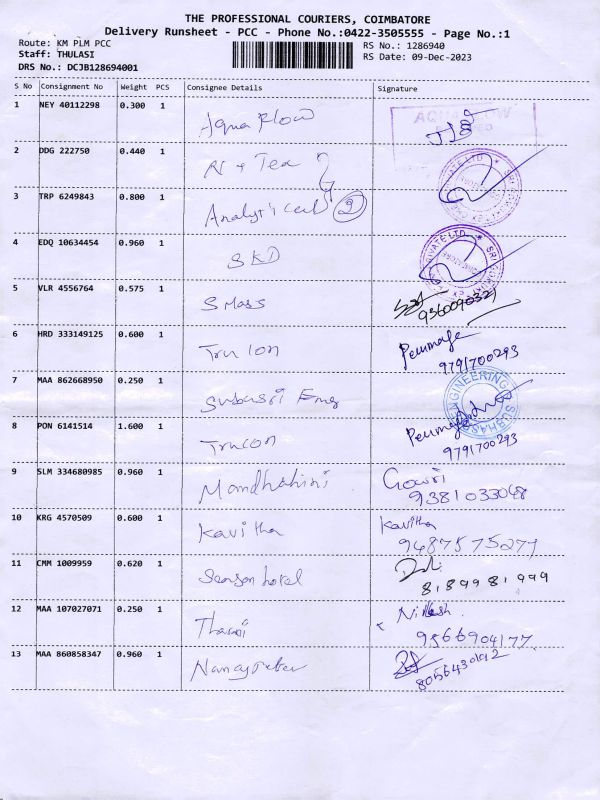 THE PROFESSIONAL COURIERS, COIMBATORE
Delivery Runsheet - PCC - Phone No.:0422-3505555 - Page No.:1
Route: KM PLM PCC
RS No.: 1286940
Staff: THULASI
RS Date: 09-Dec-2023
DRS No.: DCJB128694001
S No Consignment No Weight PCS Consignee Details Signature
1 NEY 40112298 0.300 1 Aqua Flow
2 DDG 222750 0.440 1 Tea
3 TRP 6249843 0.800 1 Analytical 2
4 EDQ 10634454 0.960 1 SKD
5 VLR 4556764 0.575 1 S Mass
9360090321
6 HRD 333149125 0.600 1 Perumal
9791700293
7 MAA 862668950 0.250 1 Subasri Eng
ENGINEERING
8 PON 6141514 1.600 1 Trucon
9791700293
9 SLM 334680985 0.960 1 Gowri
9381033048
10 KRG 4570509 0.600 1 Kavitha Kavitha
9487575279
11 CMM 1009959 0.620 1 hotel
8189981999
12 MAA 107027071 0.250 1
9566904177
13 MAA 860858347 0.960 1
8056430192